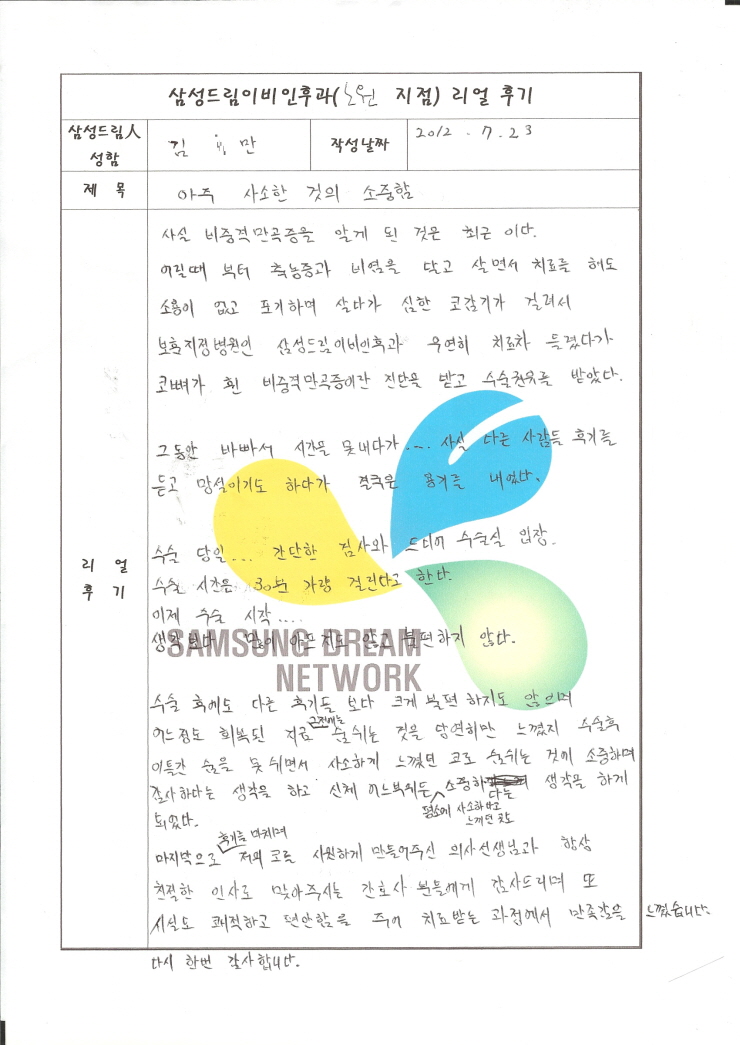 삼성드림이비인후과(노원 지점) 리얼 후기
삼성드림人
성함
김 만
작성날짜
2012 . 7. 23
제 목
아주 사소한 것의 소중함
리 얼
후 기
사실 비중격만곡증을 알게 된 것은 최근 이다.
어릴때 부터 축농증과 비염을 달고 살면서 치료를 해도
소용이 없고 포기하며 살다가 심한 코감기가 걸려서
보훈지정병원인 삼성드림이비인후과 우연히 치료차 들렸다가
코뼈가 휜 비중격만곡증이란 진단을 받고 수술권유를 받았다.
그동안 바빠서 시간을 못내다가 ... 사실 다른 사람들 후기를
듣고 망설이기도 하다가 결국은 용기를 내었다.
수술 당일.... 간단한 검사와 드디어 수술실 입장.
수술 시간은 30분 가량 걸린다고 한다.
이제 수술 시작....
생각보다 많이 아프지도 않고 불편하지 않다.
SAMSUNG DREAM
NETWORK
수술 후에도 다른 후기들 보다 크게 불편 하지도 않으며
어느정도 회복된 지금 근전에는 숨쉬는 것을 당연히만 느꼈지 수술후
이틀간 숨을 못 쉬면서 사소하게 느꼈던 코로 숨쉬는 것에 소중하며
감사하다는 생각을 하고 신체 어느부위든 평소에 사소하다고 느끼던 것도 소중하다는 생각을 하게
되었다.
마지막으로 후기를 마치며 저의 코를 시원하게 만들어주신 의사선생님과 항상
친절한 인사로 맞아주시는 간호사 분들에게 감사드리며 또
시설도 쾌적하고 편안함을 주어 치료받는 과정에서 만족감을 느꼈습니다.
다시 한번 감사합니다.